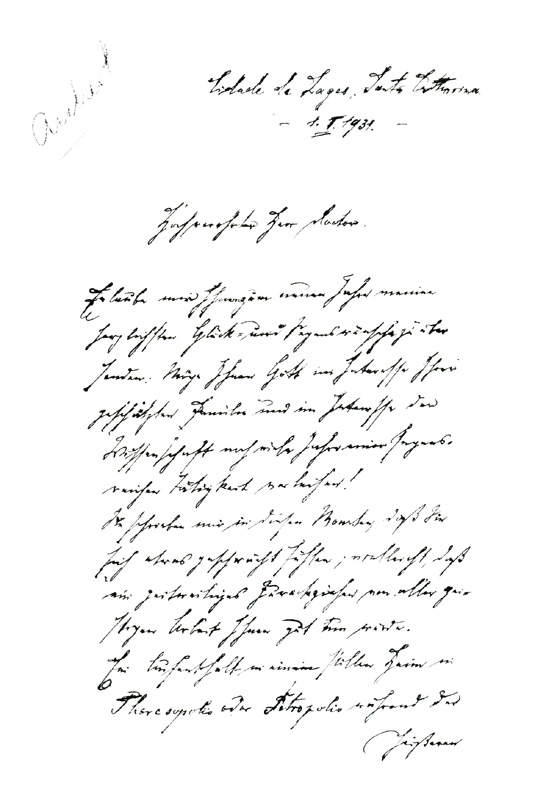 Cidade de Lages, Santa Catharina
- 1. I. 1931. -
Hochverehrter Herr Doctor.
Erlaube mir Ihnen zum neuen Jahre meine
herzlichsten Glück- und Segenswünsche zu über
senden. Möge Ihnen Gott im Interesse Ihrer
geschätzten Familie und im Interesse der
Wissenschaft noch viele Jahre einer Segens-
reichen Tätigkeit verleihen!
Sie schrieben mir in diesen Monaten, daß Sie
sich etwas geschwächt fühlen; vielleicht, daß
ein zeitweiliges Zurückziehen von aller gei-
stigen Arbeit Ihnen gut tun würde.
Ein Aufenthalt in einem stillen Heim in
Theresopolis oder Petropolis während der
heißeren